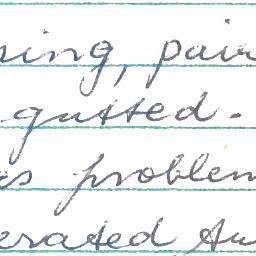 sing, pair
gutted.
s problem
erated Au